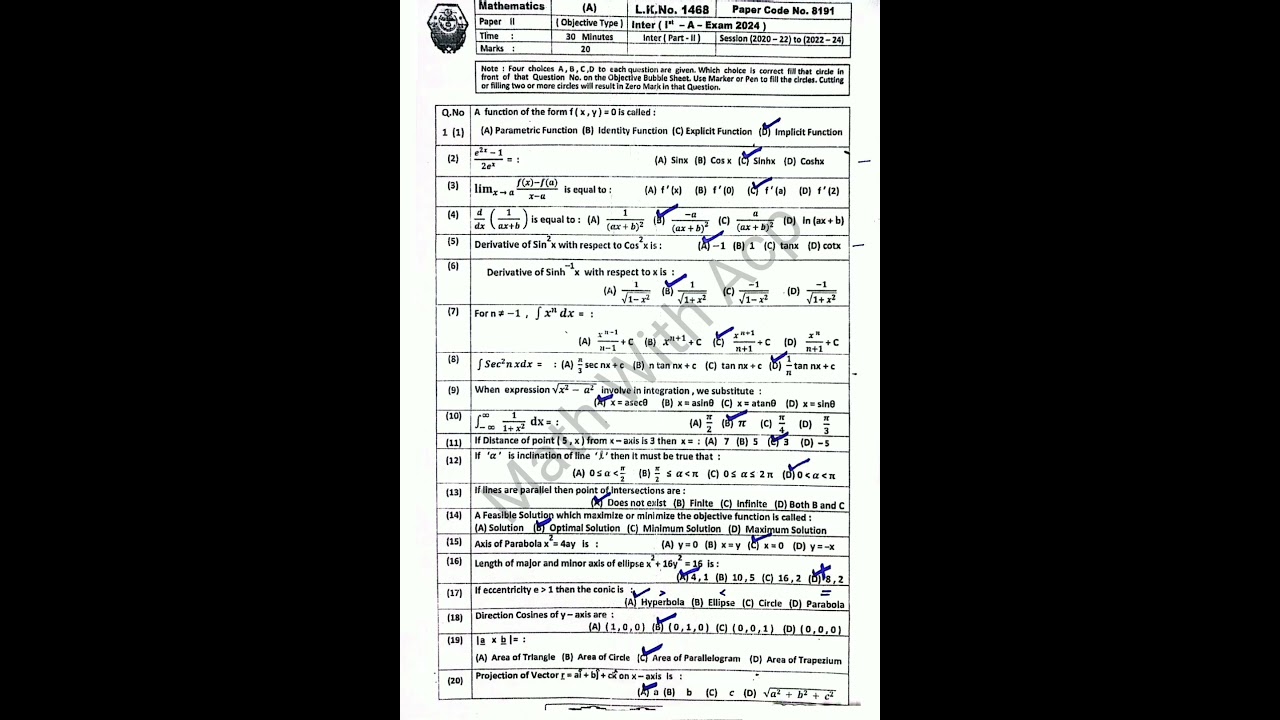 Mathematics (A) L.K.No. 1468 Paper Code No. 8191
Paper II ( Objective Type ) Inter ( Ist – A – Exam 2024 )
Time : 30 Minutes Inter ( Part - II ) Session (2020 – 22) to (2022 – 24)
Marks : 20
Note : Four choices A, B, C, D to each question are given. Which choice is correct fill that circle in
front of that Question No. on the Objective Bubble Sheet. Use Marker or Pen to fill the circles. Cutting
or filling two or more circles will result in Zero Mark in that Question.
Q.No A function of the form f ( x , y ) = 0 is called :
1 (1) (A) Parametric Function (B) Identity Function (C) Explicit Function (D) Implicit Function
(2) e^2x − 1 / 2e^x = : (A) Sinx (B) Cos x (C) Sinhx (D) Coshx
(3) lim x→a f(x)−f(a) / x−a is equal to : (A) f ′ (x) (B) f ′ (0) (C) f ′ (a) (D) f ′ (2)
(4) d/dx ( 1 / ax+b ) is equal to : (A) 1 / (ax + b)² (B) −a / (ax + b)² (C) a / (ax + b)² (D) ln (ax + b)
(5) Derivative of Sin²x with respect to Cos²x is : (A) −1 (B) 1 (C) tanx (D) cotx
(6) Derivative of Sinh⁻¹x with respect to x is :
(A) 1 / √1− x² (B) 1 / √1+ x² (C) −1 / √1− x² (D) −1 / √1+ x²
(7) For n ≠ −1 , ∫ xⁿ dx = :
(A) x^n−1 / n−1 + C (B) x^n+1 + C (C) x^n+1 / n+1 + C (D) x^n / n+1 + C
(8) ∫ Sec²nxdx = : (A) n/3 sec nx + c (B) n tan nx + c (C) tan nx + c (D) 1/n tan nx + c
(9) When expression √x² − a² involve in integration , we substitute :
(A) x = asecθ (B) x = asinθ (C) x = atanθ (D) x = sinθ
(10) ∫−∞^∞ 1 / 1+ x² dx = : (A) π/2 (B) π (C) π/4 (D) π/3
(11) If Distance of point ( 5 , x ) from x – axis is 3 then x = : (A) 7 (B) 5 (C) 3 (D) – 5
(12) If 'α' is inclination of line 'ℓ' then it must be true that :
(A) 0 ≤ α < π/2 (B) π/2 ≤ α < π (C) 0 ≤ α ≤ 2 π (D) 0 < α < π
(13) If lines are parallel then point of intersections are :
(A) Does not exist (B) Finite (C) Infinite (D) Both B and C
(14) A Feasible Solution which maximize or minimize the objective function is called :
(A) Solution (B) Optimal Solution (C) Minimum Solution (D) Maximum Solution
(15) Axis of Parabola x² = 4ay is : (A) y = 0 (B) x = y (C) x = 0 (D) y = –x
(16) Length of major and minor axis of ellipse x² + 16y² = 16 is :
(A) 4 , 1 (B) 10 , 5 (C) 16 , 2 (D) 8 , 2
(17) If eccentricity e > 1 then the conic is : > < =
(A) Hyperbola (B) Ellipse (C) Circle (D) Parabola
(18) Direction Cosines of y – axis are :
(A) ( 1 , 0 , 0 ) (B) ( 0 , 1 , 0 ) (C) ( 0 , 0 , 1 ) (D) ( 0 , 0 , 0 )
(19) |a x b| = :
(A) Area of Triangle (B) Area of Circle (C) Area of Parallelogram (D) Area of Trapezium
(20) Projection of Vector r = aî + bĵ + ck̂ on x – axis is :
(A) a (B) b (C) c (D) √a² + b² + c²
Math With Acp